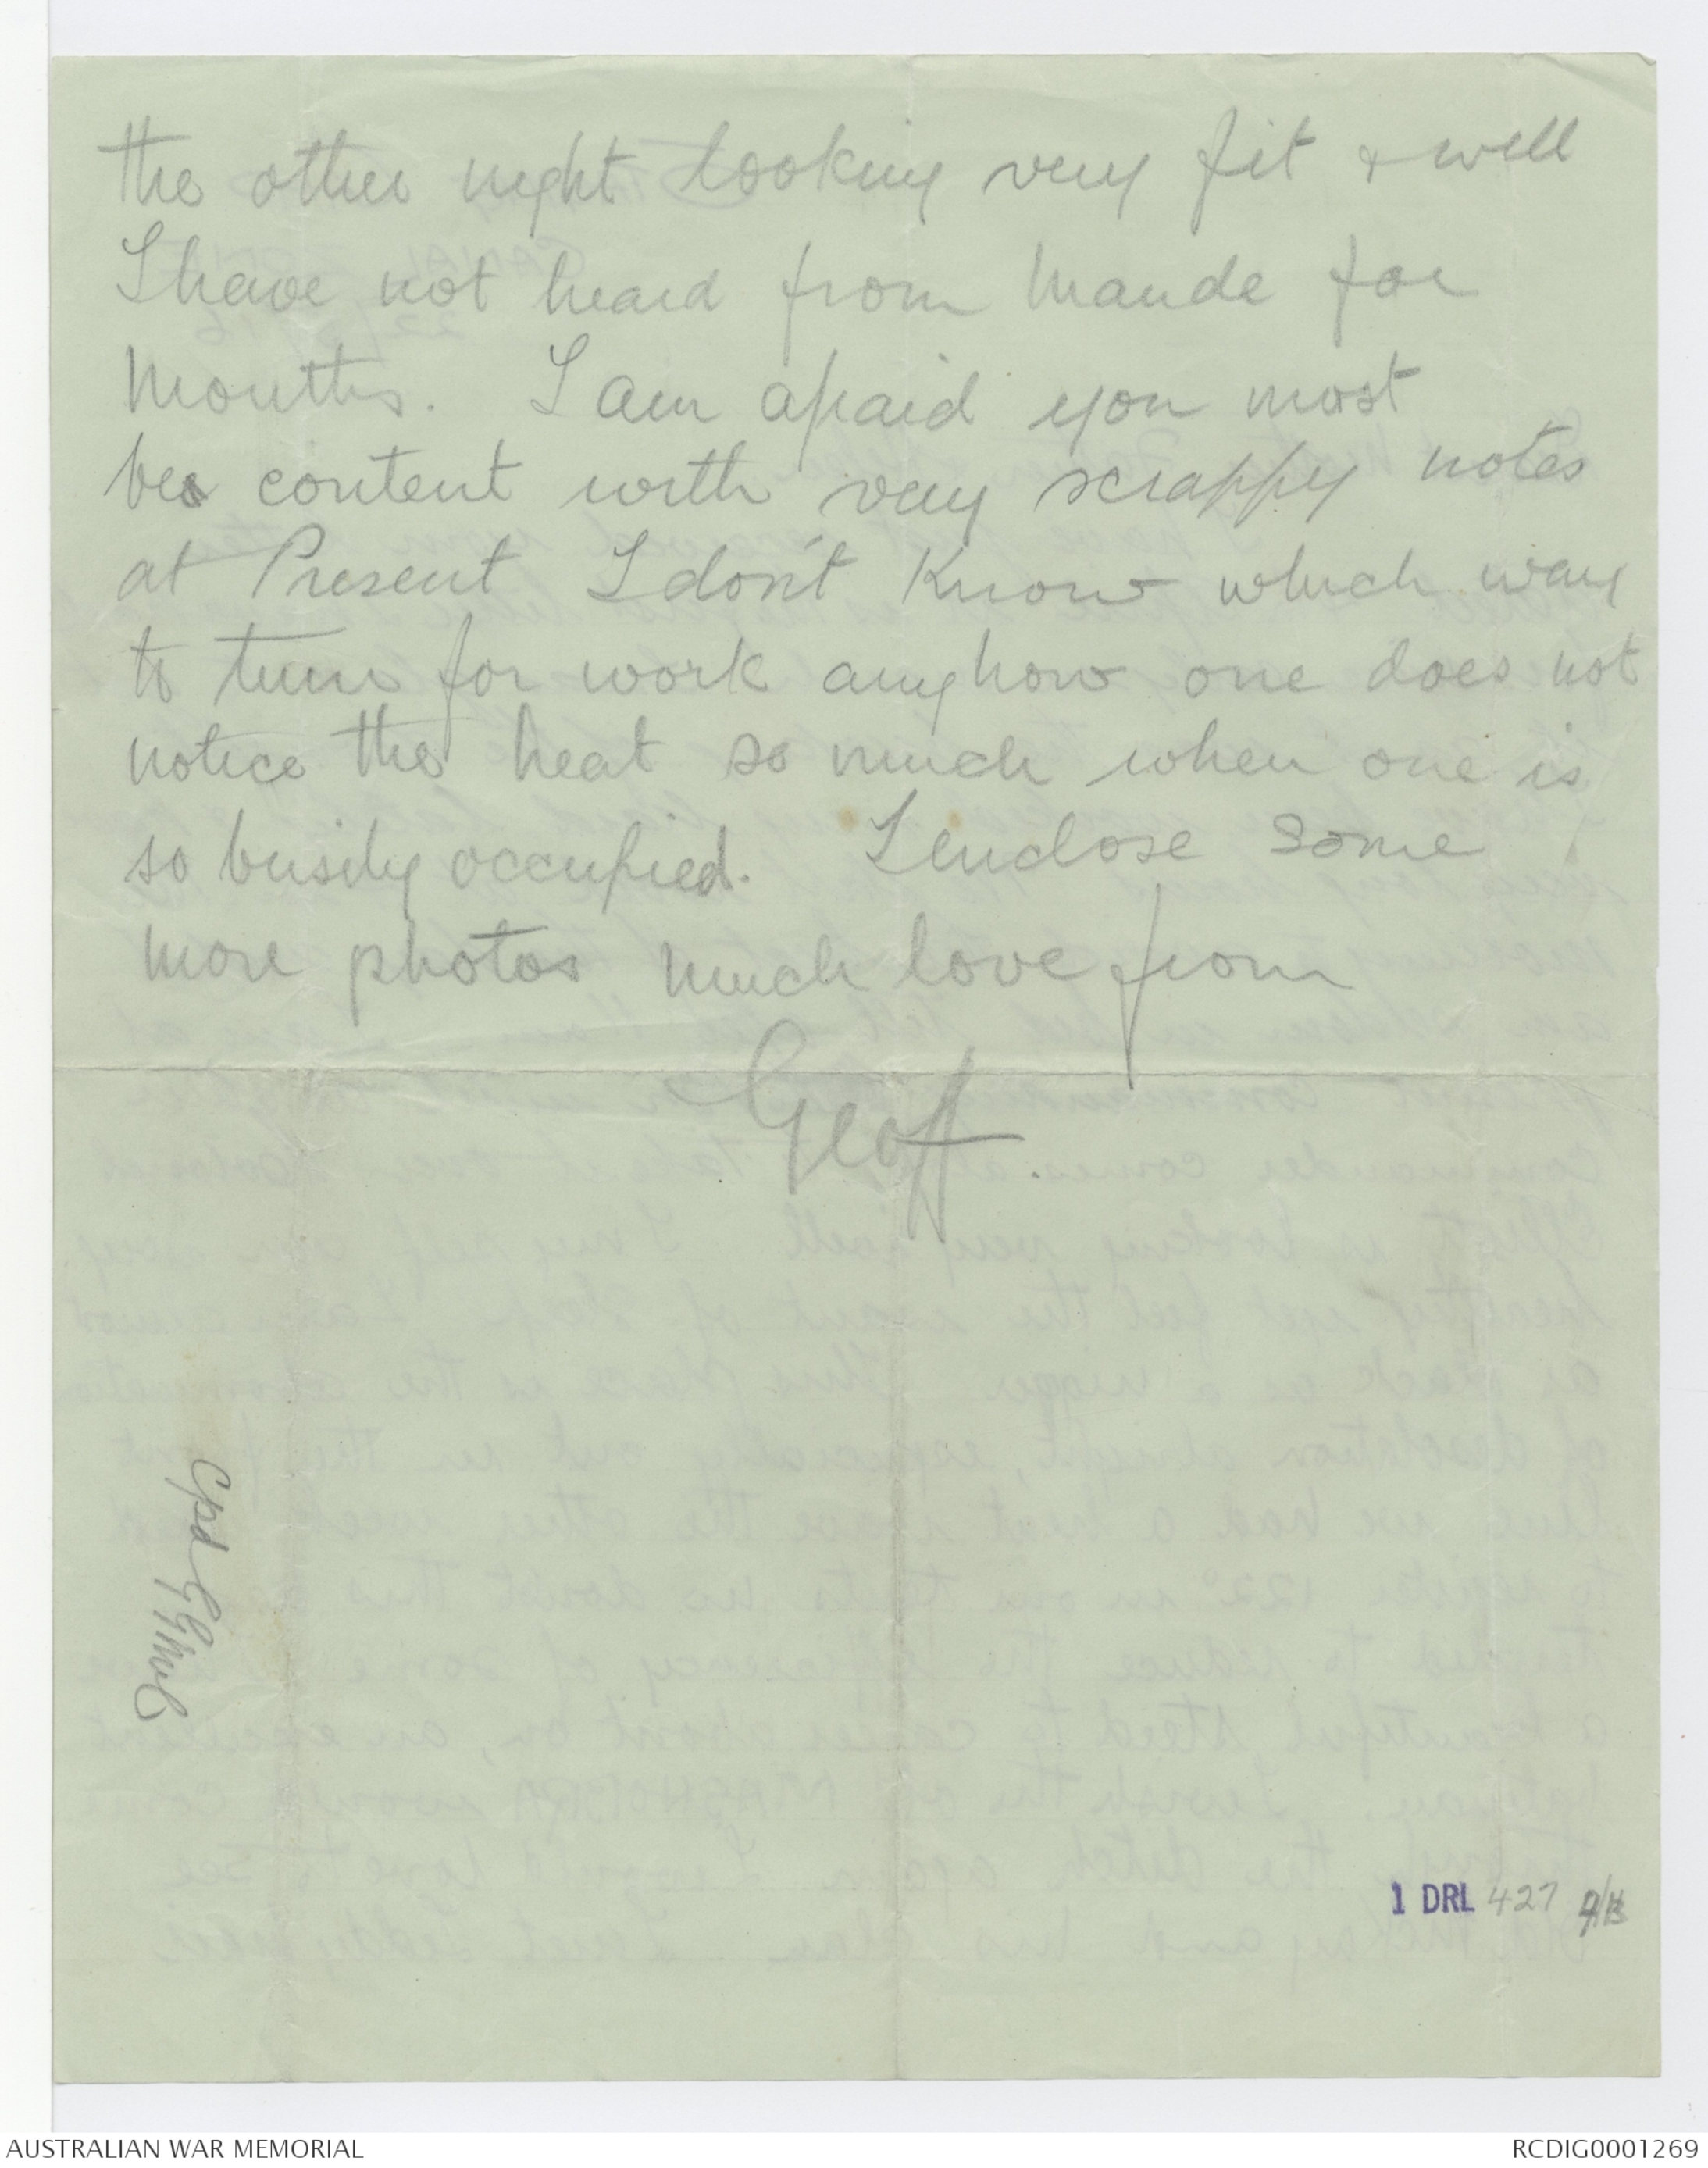 the other night looking very fit & well
I have not heard from Maude for
months. I am afraid you must
be content with very scrappy notes
at Present I don't Know which way
to turn for work anyhow one does not
notice the heat so much when one is
so busily occupied. I enclose some
more photos much love from
Geoff
Cpd
1 DRL 427
AUSTRALIAN WAR MEMORIAL
RCDIG0001269